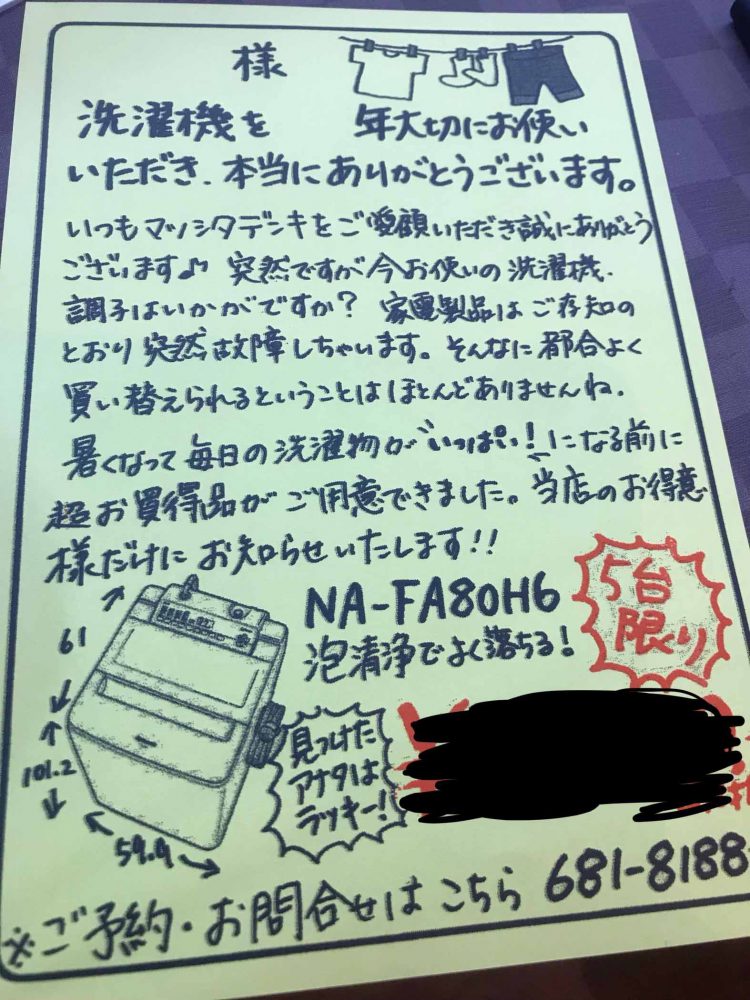 様
洗濯機を 年大切にお使い
いただき、本当にありがとうございます。
いつもマツシタデンキをご愛顧いただき誠にありがとう
ございます♪ 突然ですが今お使いの洗濯機、
調子はいかがですか？ 家電製品はご存知の
とおり突然故障しちゃいます。そんなに都合よく
買い替えられるということはほとんどありませんね。
暑くなって毎日の洗濯物が“いっぱい！”になる前に
超お買得品がご用意できました。当店のお得意
様だけにお知らせいたします!!
NA-FA80H6
泡清浄でよく落ちる！
5台
限り
61
101.2
59.9
見つけた
アナタは
ラッキー！
※ご予約・お問合せはこちら 681-8188